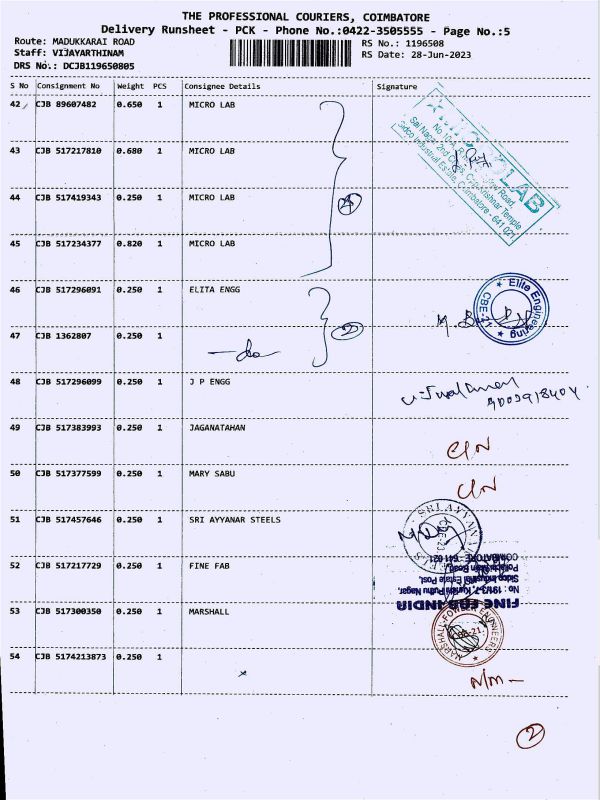 THE PROFESSIONAL COURIERS, COIMBATORE
Delivery Runsheet - PCK - Phone No.:0422-3505555 - Page No.:5
Route: MADUKKARAI ROAD
RS No.: 1196508
Staff: VIJAYARTHINAM
RS Date: 28-Jun-2023
DRS No.: DCJB119650805
S No Consignment No Weight PCS Consignee Details Signature
42 CJB 89607482 0.650 1 MICRO LAB
43 CJB 517217810 0.680 1 MICRO LAB
44 CJB 517419343 0.250 1 MICRO LAB
45 CJB 517234377 0.820 1 MICRO LAB
LAB
Sidco Industrial Estate, Coimbatore - 641 021
4
46 CJB 517296091 0.250 1 ELITA ENGG
Elite Engineering
CBE-21
47 CJB 1362807 0.250 1
do
2
48 CJB 517296099 0.250 1 J P ENGG
49 CJB 517383993 0.250 1 JAGANATAHAN
C/N
50 CJB 517377599 0.250 1 MARY SABU
C/N
51 CJB 517457646 0.250 1 SRI AYYANAR STEELS
SRI AYYANAR
COIMBATORE - 641 021
52 CJB 517217729 0.250 1 FINE FAB
Sidco Industrial Estate Post,
No. 191/3-7, Kurichi Pudhu Nagar,
FINE FAB INDIA
53 CJB 517300350 0.250 1 MARSHALL
MARSHALL-FOWLER ENGINEERS
54 CJB 5174213873 0.250 1
2